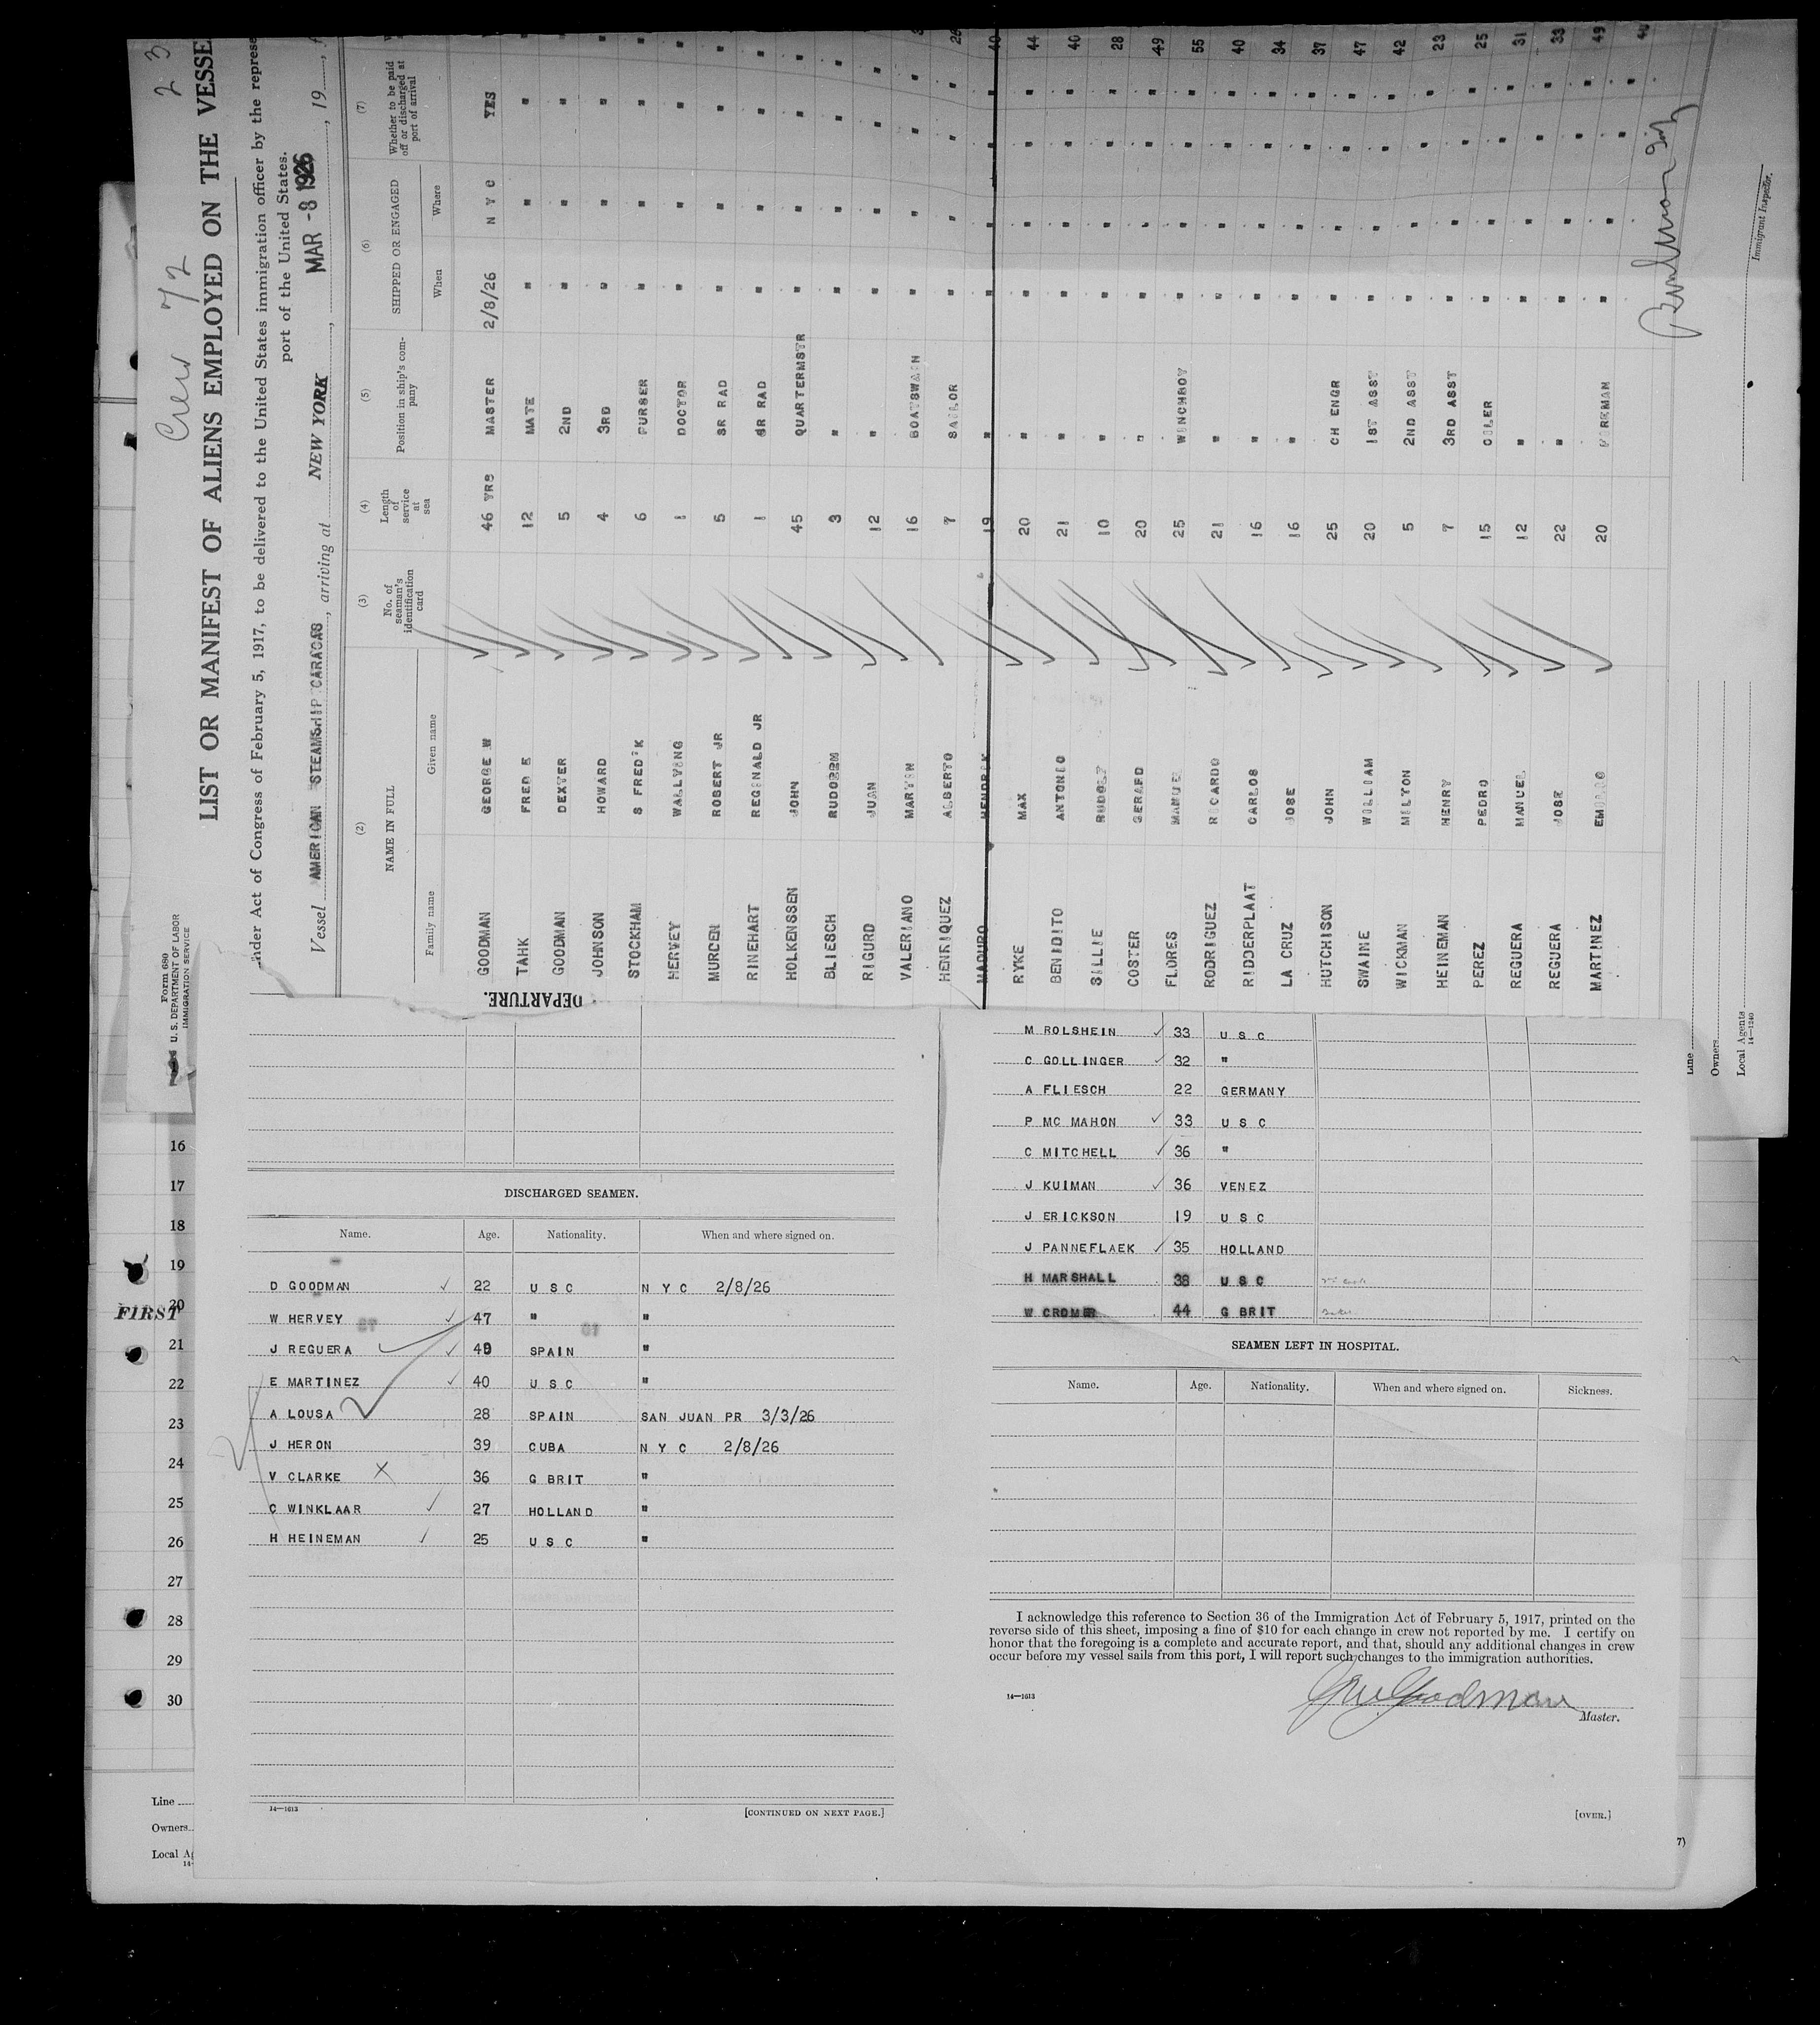 Crew 72
2 3
LIST OR MANIFEST OF ALIENS EMPLOYED ON THE VESSE
nder Act of Congress of February 5, 1917, to be delivered to the United States immigration officer by the represe
port of the United States.
Vessel AMERICAN STEAMSHIP CARACAS, arriving at NEW YORK, MAR -8 1926, 19
Form 680
U. S. DEPARTMENT OF LABOR
IMMIGRATION SERVICE
(2) (3) (4) (5) (6) (7)
NAME IN FULL
Family name Given name
No. of seaman's identification card
Length of service at sea
Position in ship's company
SHIPPED OR ENGAGED
When Where
Whether to be paid off or discharged at port of arrival
GOODMAN GEORGE W 46 YRS MASTER 2/8/26 N Y C YES
TAHK FRED E 12 MATE " " "
GOODMAN DEXTER 5 2ND " " "
JOHNSON HOWARD 4 3RD " " "
STOCKHAM S FRED'K 6 PURSER " " "
HERVEY WALLVING 1 DOCTOR " " "
MURDEN ROBERT JR 5 SR RAD " " "
RINEHART REGINALD JR 1 JR RAD " " "
HOLKENSSEN JOHN 45 QUARTERMSTR " " "
BLIESCH 3 " " " "
RIGURD JUAN 12 " " " "
VALERIANO MARTIN 16 BOATSWAIN " " "
HENRIQUEZ ALBERTO 7 SAILOR " " " 26
MADURO HENDRIK 19 " " " " 40
RYKE MAX 20 " " " " 44
BENIDITO ANTONIO 21 " " " " 40
SILLIE RUDOLF 10 " " " " 28
COSTER GERARD 20 " " " " 49
FLORES MANUEL 25 WINCHBOY " " " 55
RODRIGUEZ RICARDO 21 " " " " 40
RIDDERPLAAT CARLOS 16 " " " " 34
LA CRUZ JOSE 16 " " " " 37
HUTCHISON JOHN 25 CH ENGR " " " 47
SWAINE WILLIAM 20 1ST ASST " " " 42
WICKMAN MILTON 5 2ND ASST " " " 23
HEINEMAN HENRY 7 3RD ASST " " " 25
PEREZ PEDRO 15 OILER " " " 31
REGUERA MANUEL 12 " " " " 33
REGUERA JOSE 22 " " " " 49
MARTINEZ EMILIO 20 FIREMAN " " "
Immigrant Inspector.
Line
Owners
Local Agents
14—1240
DEPARTURE.
16
17
18
19
FIRST 20
21
22
23
24
25
26
27
28
29
30
Line
Owners
Local Ag
14-
DISCHARGED SEAMEN.
Name. Age. Nationality. When and where signed on.
D GOODMAN ✓ 22 U S C N Y C 2/8/26
W HERVEY ✓ 47 " "
J REGUERA ✓ 49 SPAIN "
E MARTINEZ ✓ 40 U S C "
A LOUSA 28 SPAIN SAN JUAN PR 3/3/26
J HERON 39 CUBA N Y C 2/8/26
V CLARKE X 36 G BRIT "
C WINKLAAR ✓ 27 HOLLAND "
H HEINEMAN ✓ 25 U S C "
14—1613
[CONTINUED ON NEXT PAGE.]
M ROLSHEIN ✓ 33 U S C
C GOLLINGER ✓ 32 "
A FLIESCH 22 GERMANY
P MC MAHON ✓ 33 U S C
C MITCHELL ✓ 36 "
J KUIMAN ✓ 36 VENEZ
J ERICKSON 19 U S C
J PANNEFLAEK ✓ 35 HOLLAND
H MARSHALL 38 U S C
W CROMER 44 G BRIT
SEAMEN LEFT IN HOSPITAL.
Name. Age. Nationality. When and where signed on. Sickness.
I acknowledge this reference to Section 36 of the Immigration Act of February 5, 1917, printed on the
reverse side of this sheet, imposing a fine of $10 for each change in crew not reported by me. I certify on
honor that the foregoing is a complete and accurate report, and that, should any additional changes in crew
occur before my vessel sails from this port, I will report such changes to the immigration authorities.
14—1613
G W Goodman
Master.
[OVER.]
7)